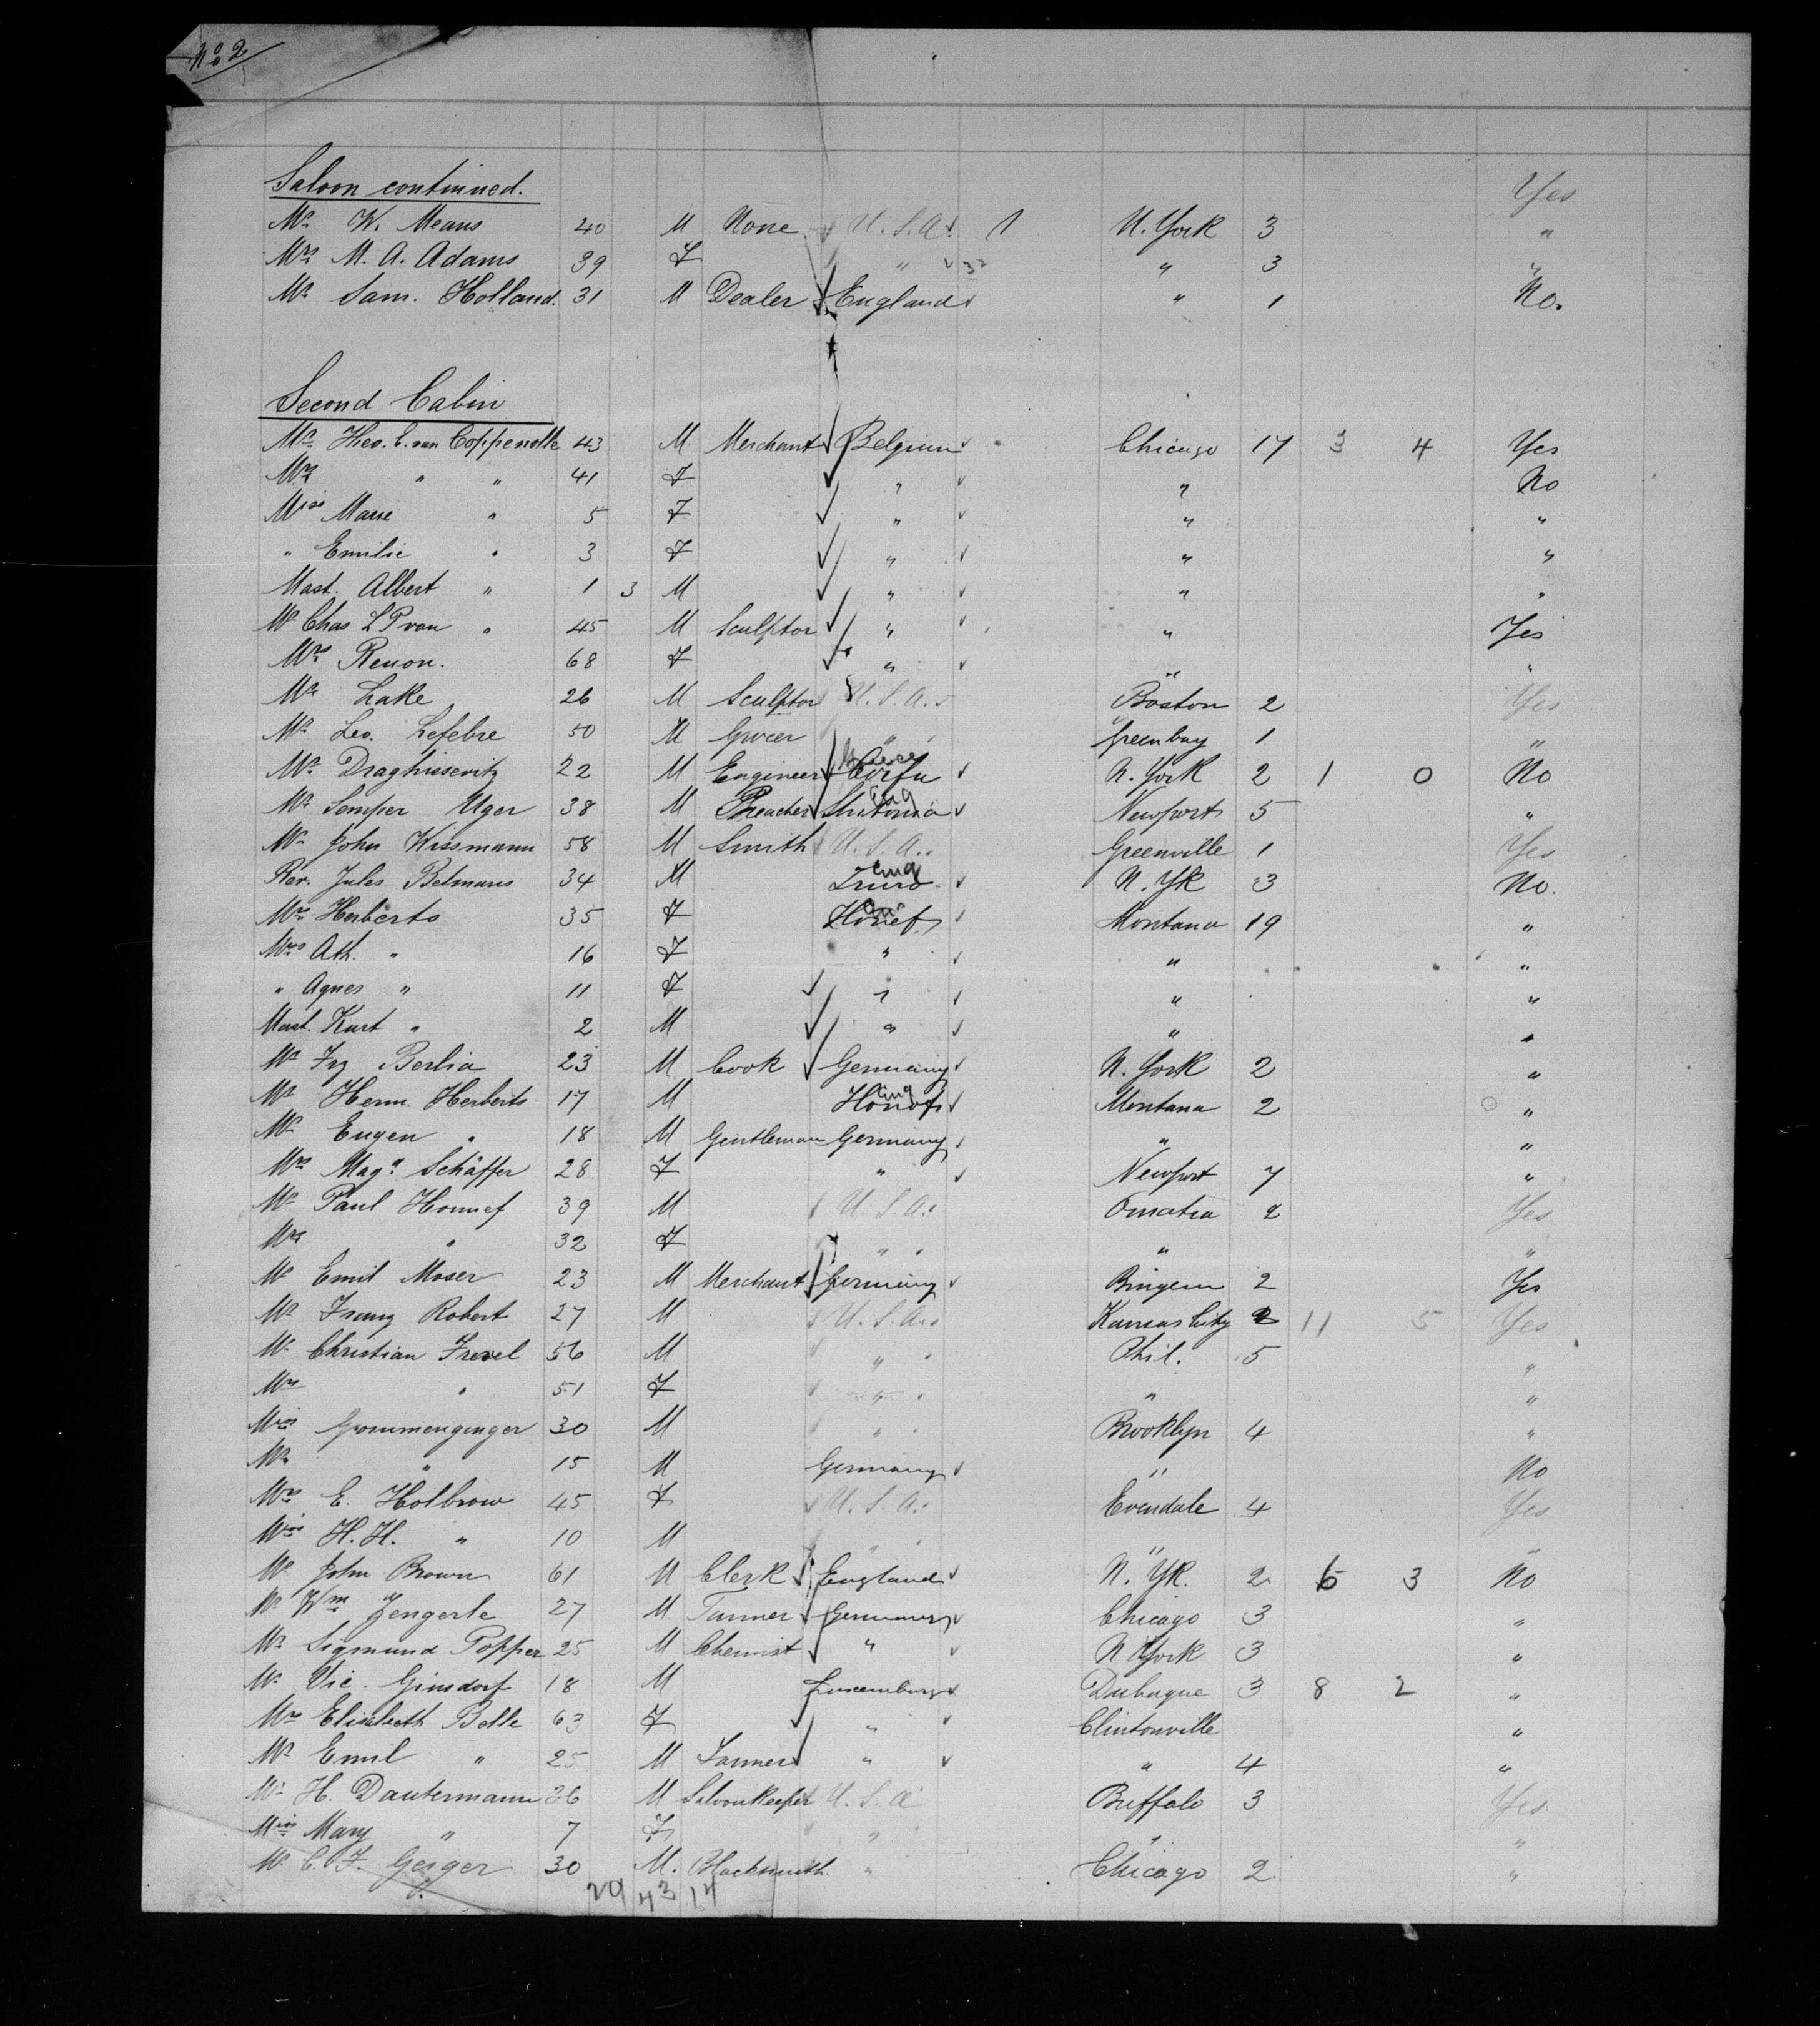 No 2
Saloon continued.
Yes
Mr W. Means 40 M None U.S.A. 1 N. York 3 "
Mrs M. A. Adams 39 F " 32 " 3 "
Mr Sam. Holland. 31 M Dealer England " 1 No.
Second Cabin
Mr Theo. E. van Coppenolle 43 M Merchant Belgium Chicago 17 3 4 Yes
Mrs " " 41 F " " No
Miss Marie " 5 F " " "
" Emilie " 3 F " " "
Mast. Albert " 1 3 M " " "
Mr Chas L P van " 45 M Sculptor " " Yes
Mrs Renon. 68 F " " "
Mr Lake 26 M Sculptor U.S.A. Boston 2 Yes
Mr Leo. Lefebre 50 M Grocer " Greenbay 1 "
Mr Draghissevitz 22 M Engineer Corfu Greece N. York 2 1 0 No
Mr Semper Uger 38 M Preacher Eng Newport 5 "
Mr John Kissmann 58 M Smith U.S.A. Greenville 1 Yes
Rev. Jules Betmans 34 M Truro Eng N. Yk 3 No.
Mrs Herberts 35 F Honef Montana 19 "
Miss Ath. " 16 F " " "
" Agnes " 11 F " " "
Mast. Kurt " 2 M " " "
Mr Frz Berlia 23 M Cook Germany N. York 2 "
Mr Herm. Herberts 17 M Honef Eng Montana 2 "
Mr Eugen " 18 M Gentleman Germany " "
Mrs Magd. Schäffer 28 F " Newport 7 "
Mr Paul Honnef 39 M U.S.A. Omaha 2 Yes
Mrs " 32 F " " "
Mr Emil Moser 23 M Merchant Germany Bingem 2 Yes
Mr Franz Robert 27 M U.S.A. Kansas City 2 11 5 Yes
Mr Christian Frevel 56 M " Phil. 5 "
Mrs " 51 F " " "
Miss Gommenginger 30 M " Brooklyn 4 "
Mr " 15 M Germany " No
Mrs E. Holbrow 45 F U.S.A. Evendale 4 Yes
Miss H.H. " 10 M " " "
Mr John Brown 61 M Clerk England N. Yk. 2 6 3 No
Mr Wm Zengerle 27 M Tanner Germany Chicago 3 "
Mr Sigmund Popper 25 M Chemist " N York 3 "
Mr Vic. Ginsdorf 18 M Luxemburg Dubuque 3 8 2 "
Mrs Elisabeth Bolle 63 F " Clintonville "
Mr Emil " 25 M Farmer " " 4 "
Mr H. Dautermann 36 M Saloonkeeper U.S.A Buffalo 3 Yes.
Miss Mary " 7 F " " "
Mr C. F. Geiger 30 M. Blacksmith " Chicago 2 "
29 43 14